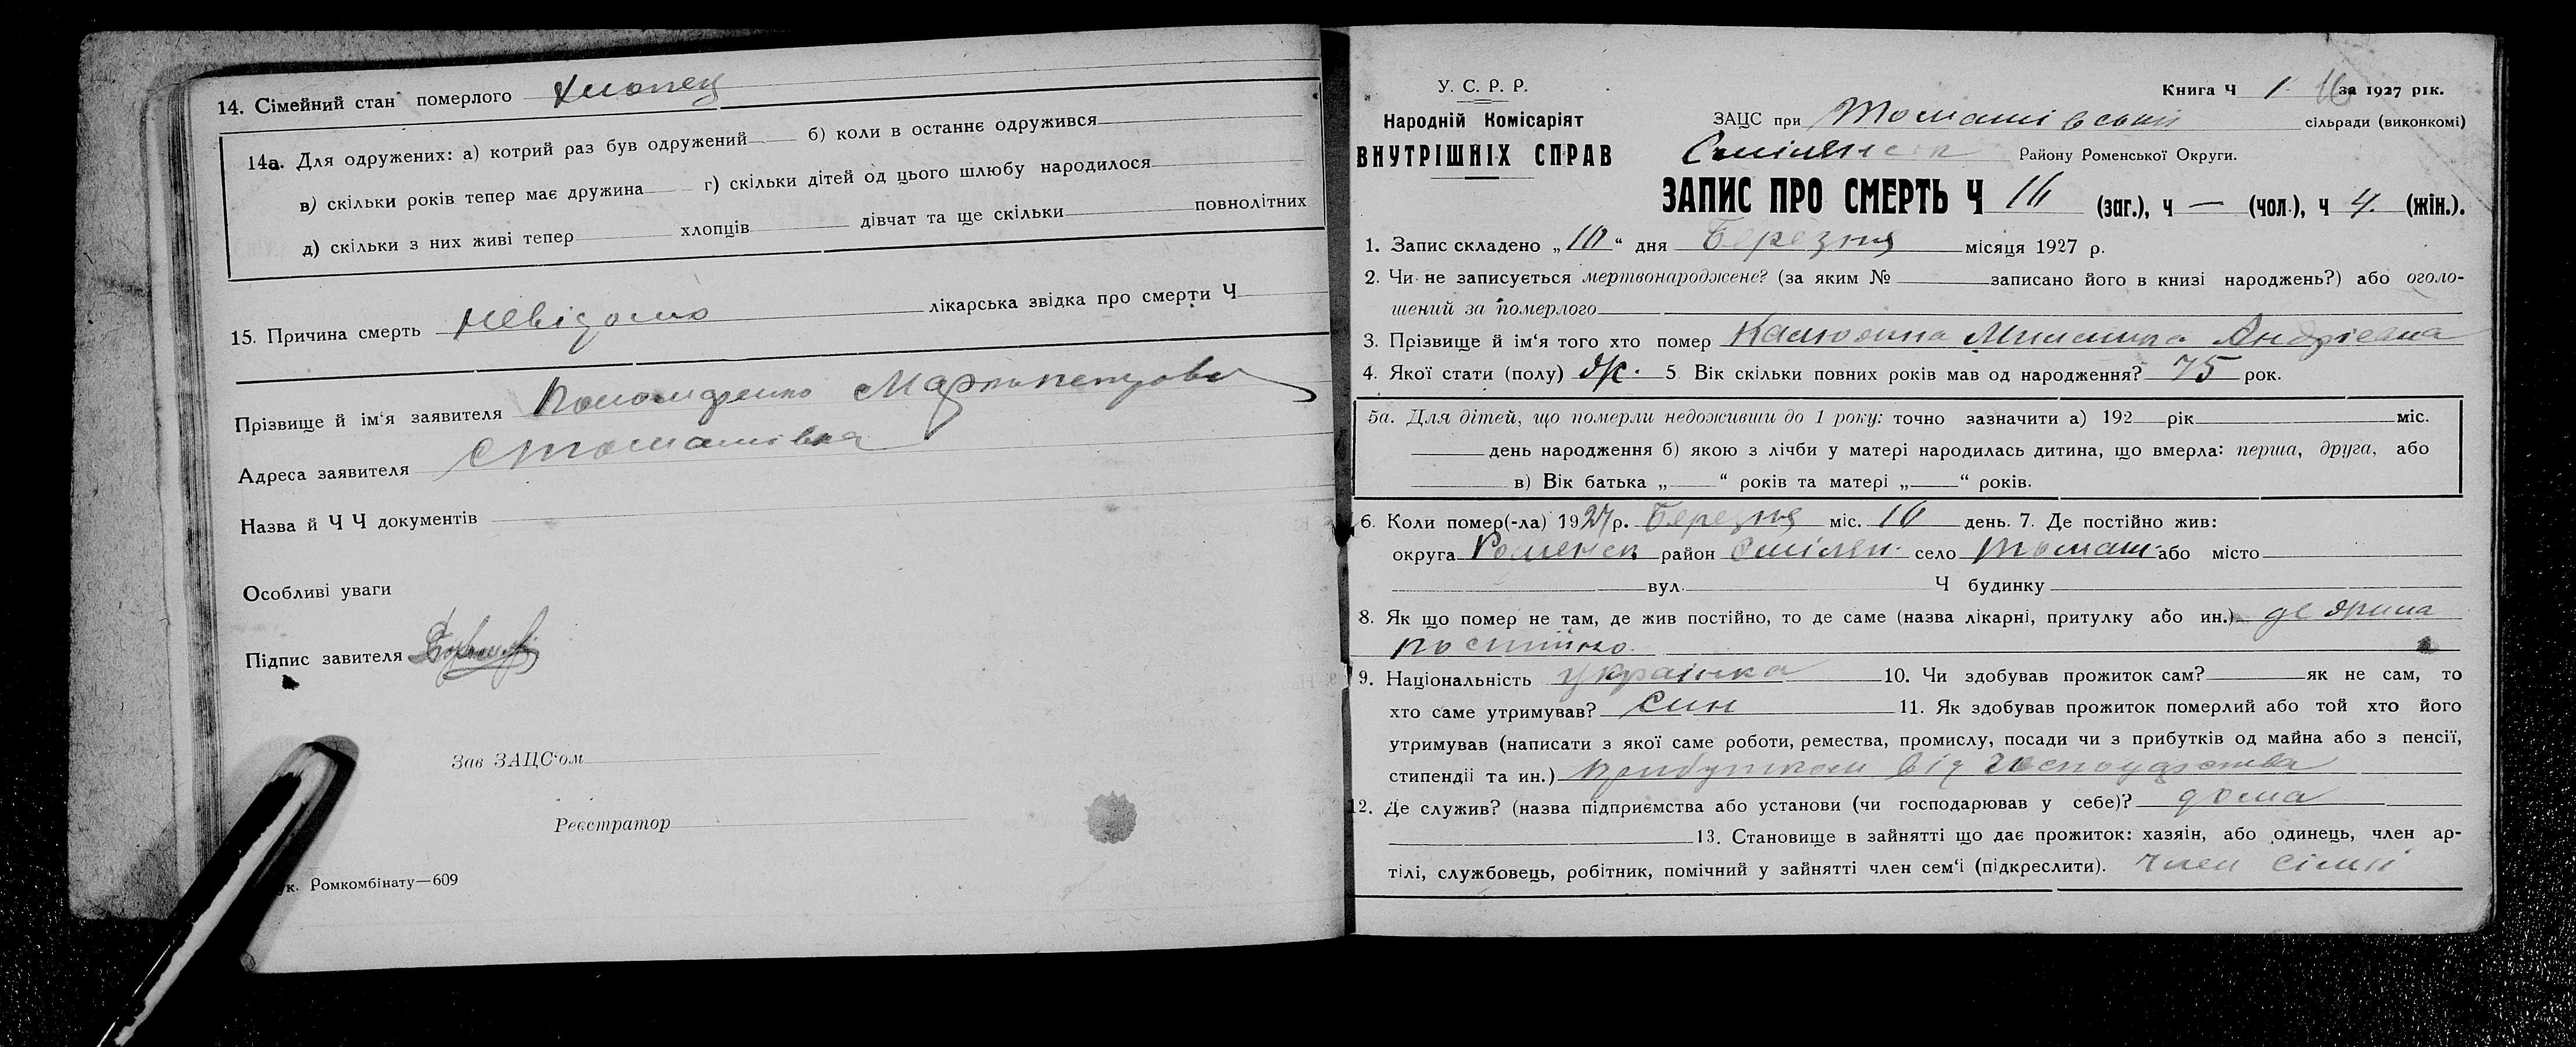 14. Сімейний стан померлого хлопец
14а. Для одружених: а) котрий раз був одружений б) коли в останнє одружився
в) скільки років тепер має дружина г) скільки дітей од цього шлюбу народилося
д) скільки з них живі тепер хлопців дівчат та ще скільки повнолітних
15. Причина смерть невідомо лікарська звідка про смерти Ч
Прізвище й ім‘я заявителя
Адреса заявителя с Томашівка
Назва й Ч Ч документів
Особливі уваги
Підпис завителя
Зав ЗАЦС‘ом
Реєстратор
ук. Ромкомбінату—609
У. С. Р. Р.
Народній Комісаріят
ВНУТРІШНІХ СПРАВ
Книга Ч 1 16 за 1927 рік.
ЗАЦС при Томашівській сільради (виконкомі)
Смілянськ Району Роменської Округи.
ЗАПИС ПРО СМЕРТЬ Ч 16 (заг.), ч — (чол.), ч 4. (жін.).
1. Запис складено „10“ дня Березня місяця 1927 р.
2. Чи не записується мертвонароджене? (за яким № записано його в книзі народжень?) або оголо-
шений за померлого
3. Прізвище й ім‘я того хто помер Андріевна
4. Якої стати (полу) ж. 5 Вік скільки повних років мав од народження? 75 рок.
5а. Для дітей, що померли недоживши до 1 року: точно зазначити а) 192 рік міс.
день народження б) якою з лічби у матері народилась дитина, що вмерла: перша, друга, або
в) Вік батька „ “ років та матері „ “ років.
6. Коли помер(-ла) 1927 р. Березня міс. 10 день. 7. Де постійно жив:
округа Роменськ район Смілян. село Томаш. або місто
вул. Ч будинку
8. Як що помер не там, де жив постійно, то де саме (назва лікарні, притулку або ин.) де жила
постійно.
9. Національність українка 10. Чи здобував прожиток сам? як не сам, то
хто саме утримував? Син 11. Як здобував прожиток померлий або той хто його
утримував (написати з якої саме роботи, ремества, промислу, посади чи з прибутків од майна або з пенсії,
стипендії та ин.) прибутком від господарства
12. Де служив? (назва підприємства або установи (чи господарював у себе)? дома
13. Становище в зайнятті що дає прожиток: хазяін, або одинець, член ар-
тілі, службовець, робітник, помічний у зайнятті член сем‘і (підкреслити). член сімї